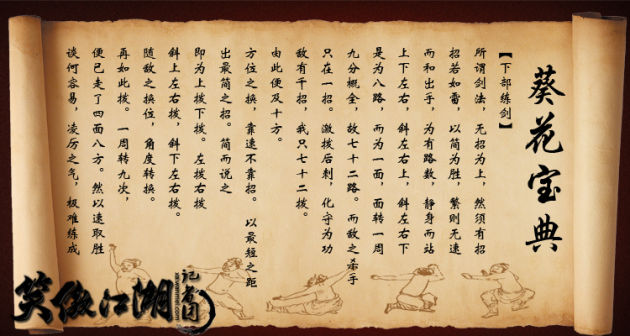 葵花宝典
【下部练剑】
所谓剑法，无招为上，然须有招
招若如雷，以简为胜，繁则无速
而和出手，为有路数，静身而站
上下左右，斜左右上，斜左右下
是为八路，而为一面，面转一周
九分概全，故七十二路。而敌之杀手
只在一招。激拨后刺，化守为功
敌有千招，我只七十二拨。
由此便及十方。
方位之换，靠速不靠招。以最短之距
出最简之招。简而说之
即为上拨下拨。左拨右拨
斜上左右拨，斜下左右拨。
随敌之换位，角度转换。
再如此拨。一周转九次，
便已走了四面八方。然以速取胜
谈何容易，凌厉之气，极难练成
笑傲江湖
记者团